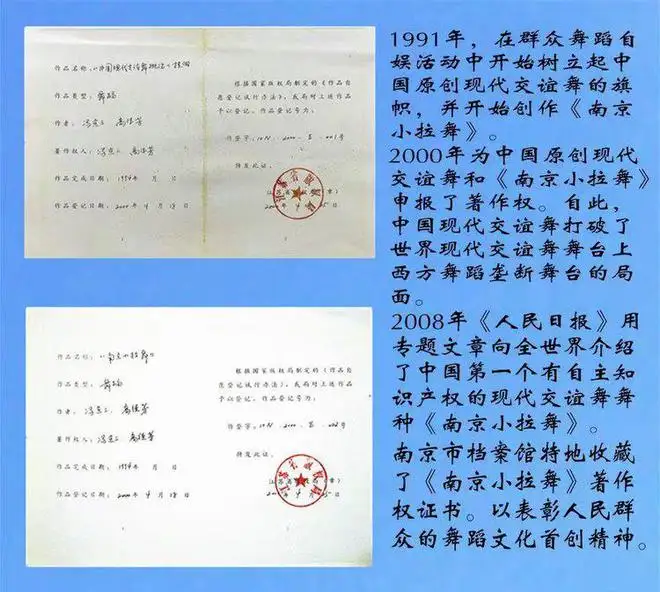 作品名称:《中国现代交谊舞概论》
作品类型: 舞蹈
作者:
著作权人:
作品完成日期: 1994年 月 日
作品登记日期: 2000年 4月 日
根据国家版权局制定的《作品自
愿登记试行办法》,我局对上述作品
予以登记。作品登记号为:
作登字: 10-N-2000-第-001号
特发此证。
2000年 4月 5日
1
2
作品名称:《南京小拉舞》
作品类型: 舞蹈
作者:
著作权人:
作品完成日期: 1994年 月 日
作品登记日期: 2000年 4月 日
根据国家版权局制定的《作品自
愿登记试行办法》,我局对上述作品
予以登记。作品登记号为:
作登字: 10-N-2000-第-002号
特发此证。
2000年 4月 5日
1
2
1991年,在群众舞蹈自
娱活动中开始树立起中
国原创现代交谊舞的旗
帜,并开始创作《南京
小拉舞》。
2000年为中国原创现代
交谊舞和《南京小拉舞》
申报了著作权。自此,
中国现代交谊舞打破了
世界现代交谊舞舞台上
西方舞蹈垄断舞台的局
面。
2008年《人民日报》用
专题文章向全世界介绍
了中国第一个有自主知
识产权的现代交谊舞舞
种《南京小拉舞》。
南京市档案馆特地收藏
了《南京小拉舞》著作
权证书。以表彰人民群
众的舞蹈文化首创精神。